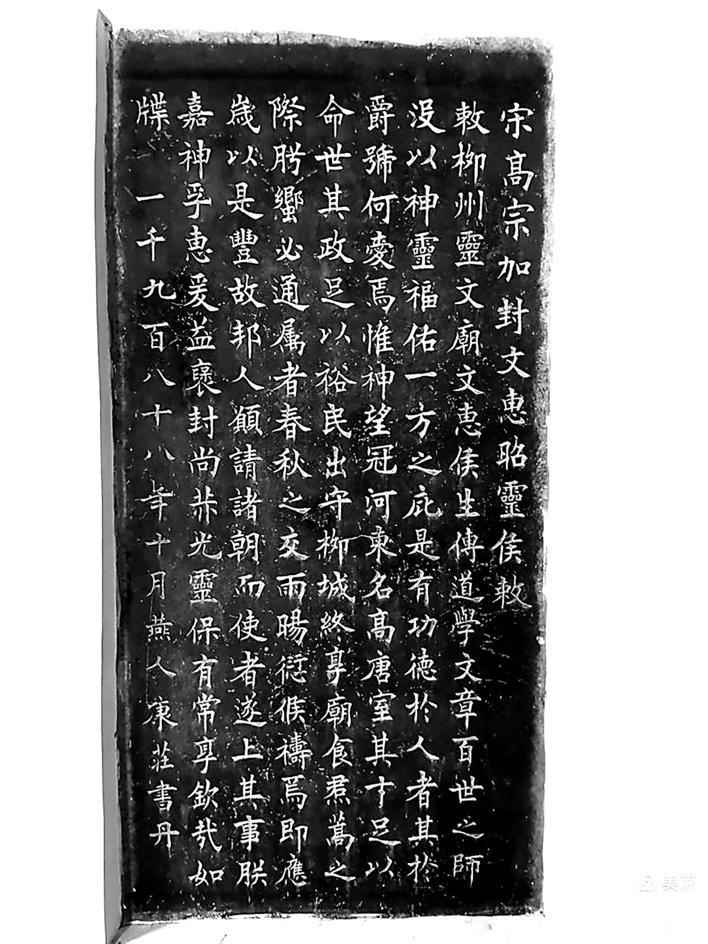 宋高宗加封文惠昭靈侯敕
敕柳州靈文廟文惠侯生傳道學文章百世之師
没以神靈福佑一方之庇是有功德於人者其於
爵號何愛焉惟神望冠河東名高唐室其才足以
命世其政足以裕民出守柳城終享廟食焄蒿之
際肸蠁必通属者春秋之交雨暘愆候禱焉即應
歳以是豐故邦人願請諸朝而使者遂上其事朕
嘉神孚惠爰益襃封尚恭光靈保有常享欽哉如
牒 一千九百八十八年十月燕人康莊書丹
美篇